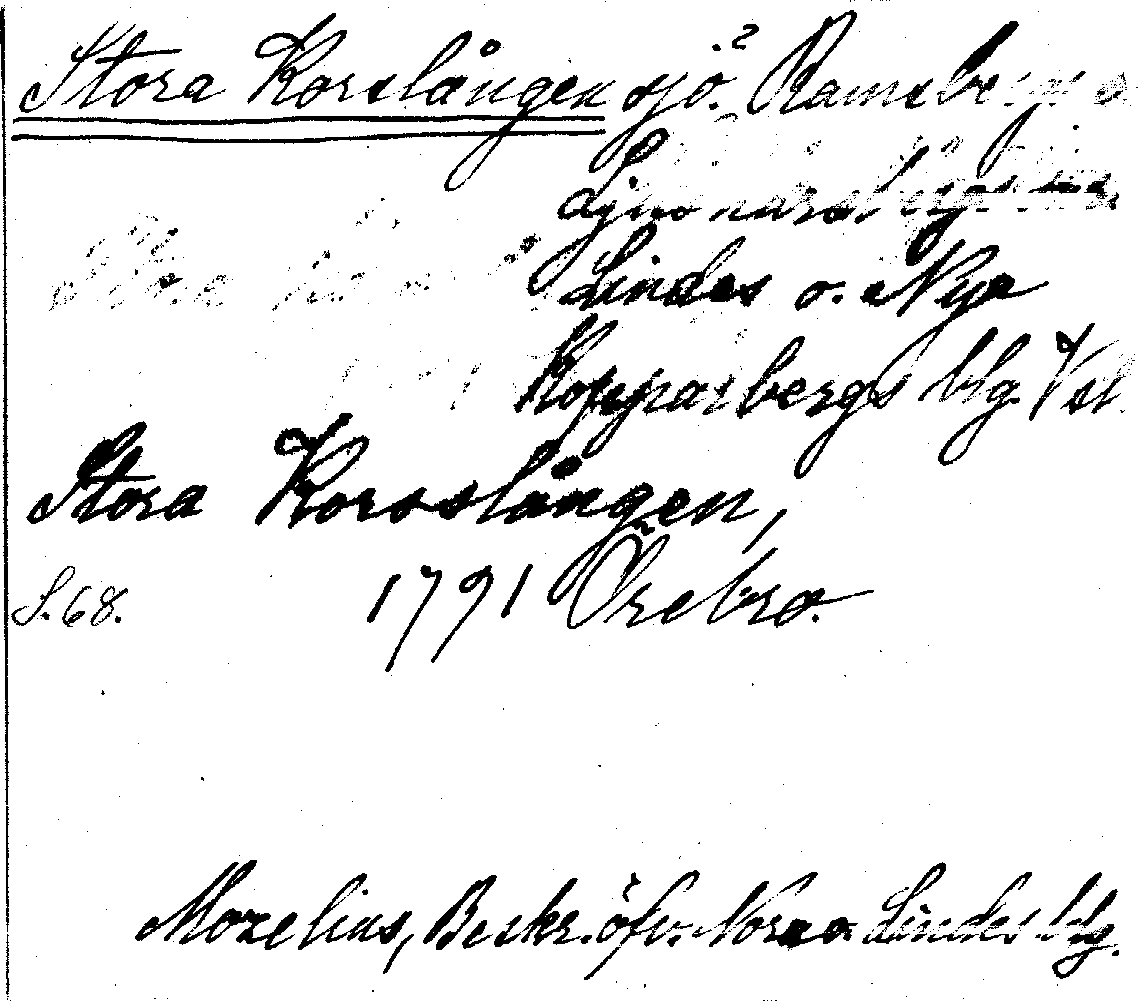 Stora Korslången sjö.² Ramsbergs o.
Ljusnarsbergs snr
Lindes o. Nya
Kopparbergs blg Vstl.
Stora Korsslången,
S. 68. 1791 Örebro.
Morelius, Beskr. öfv. Nora o. Lindes blg.